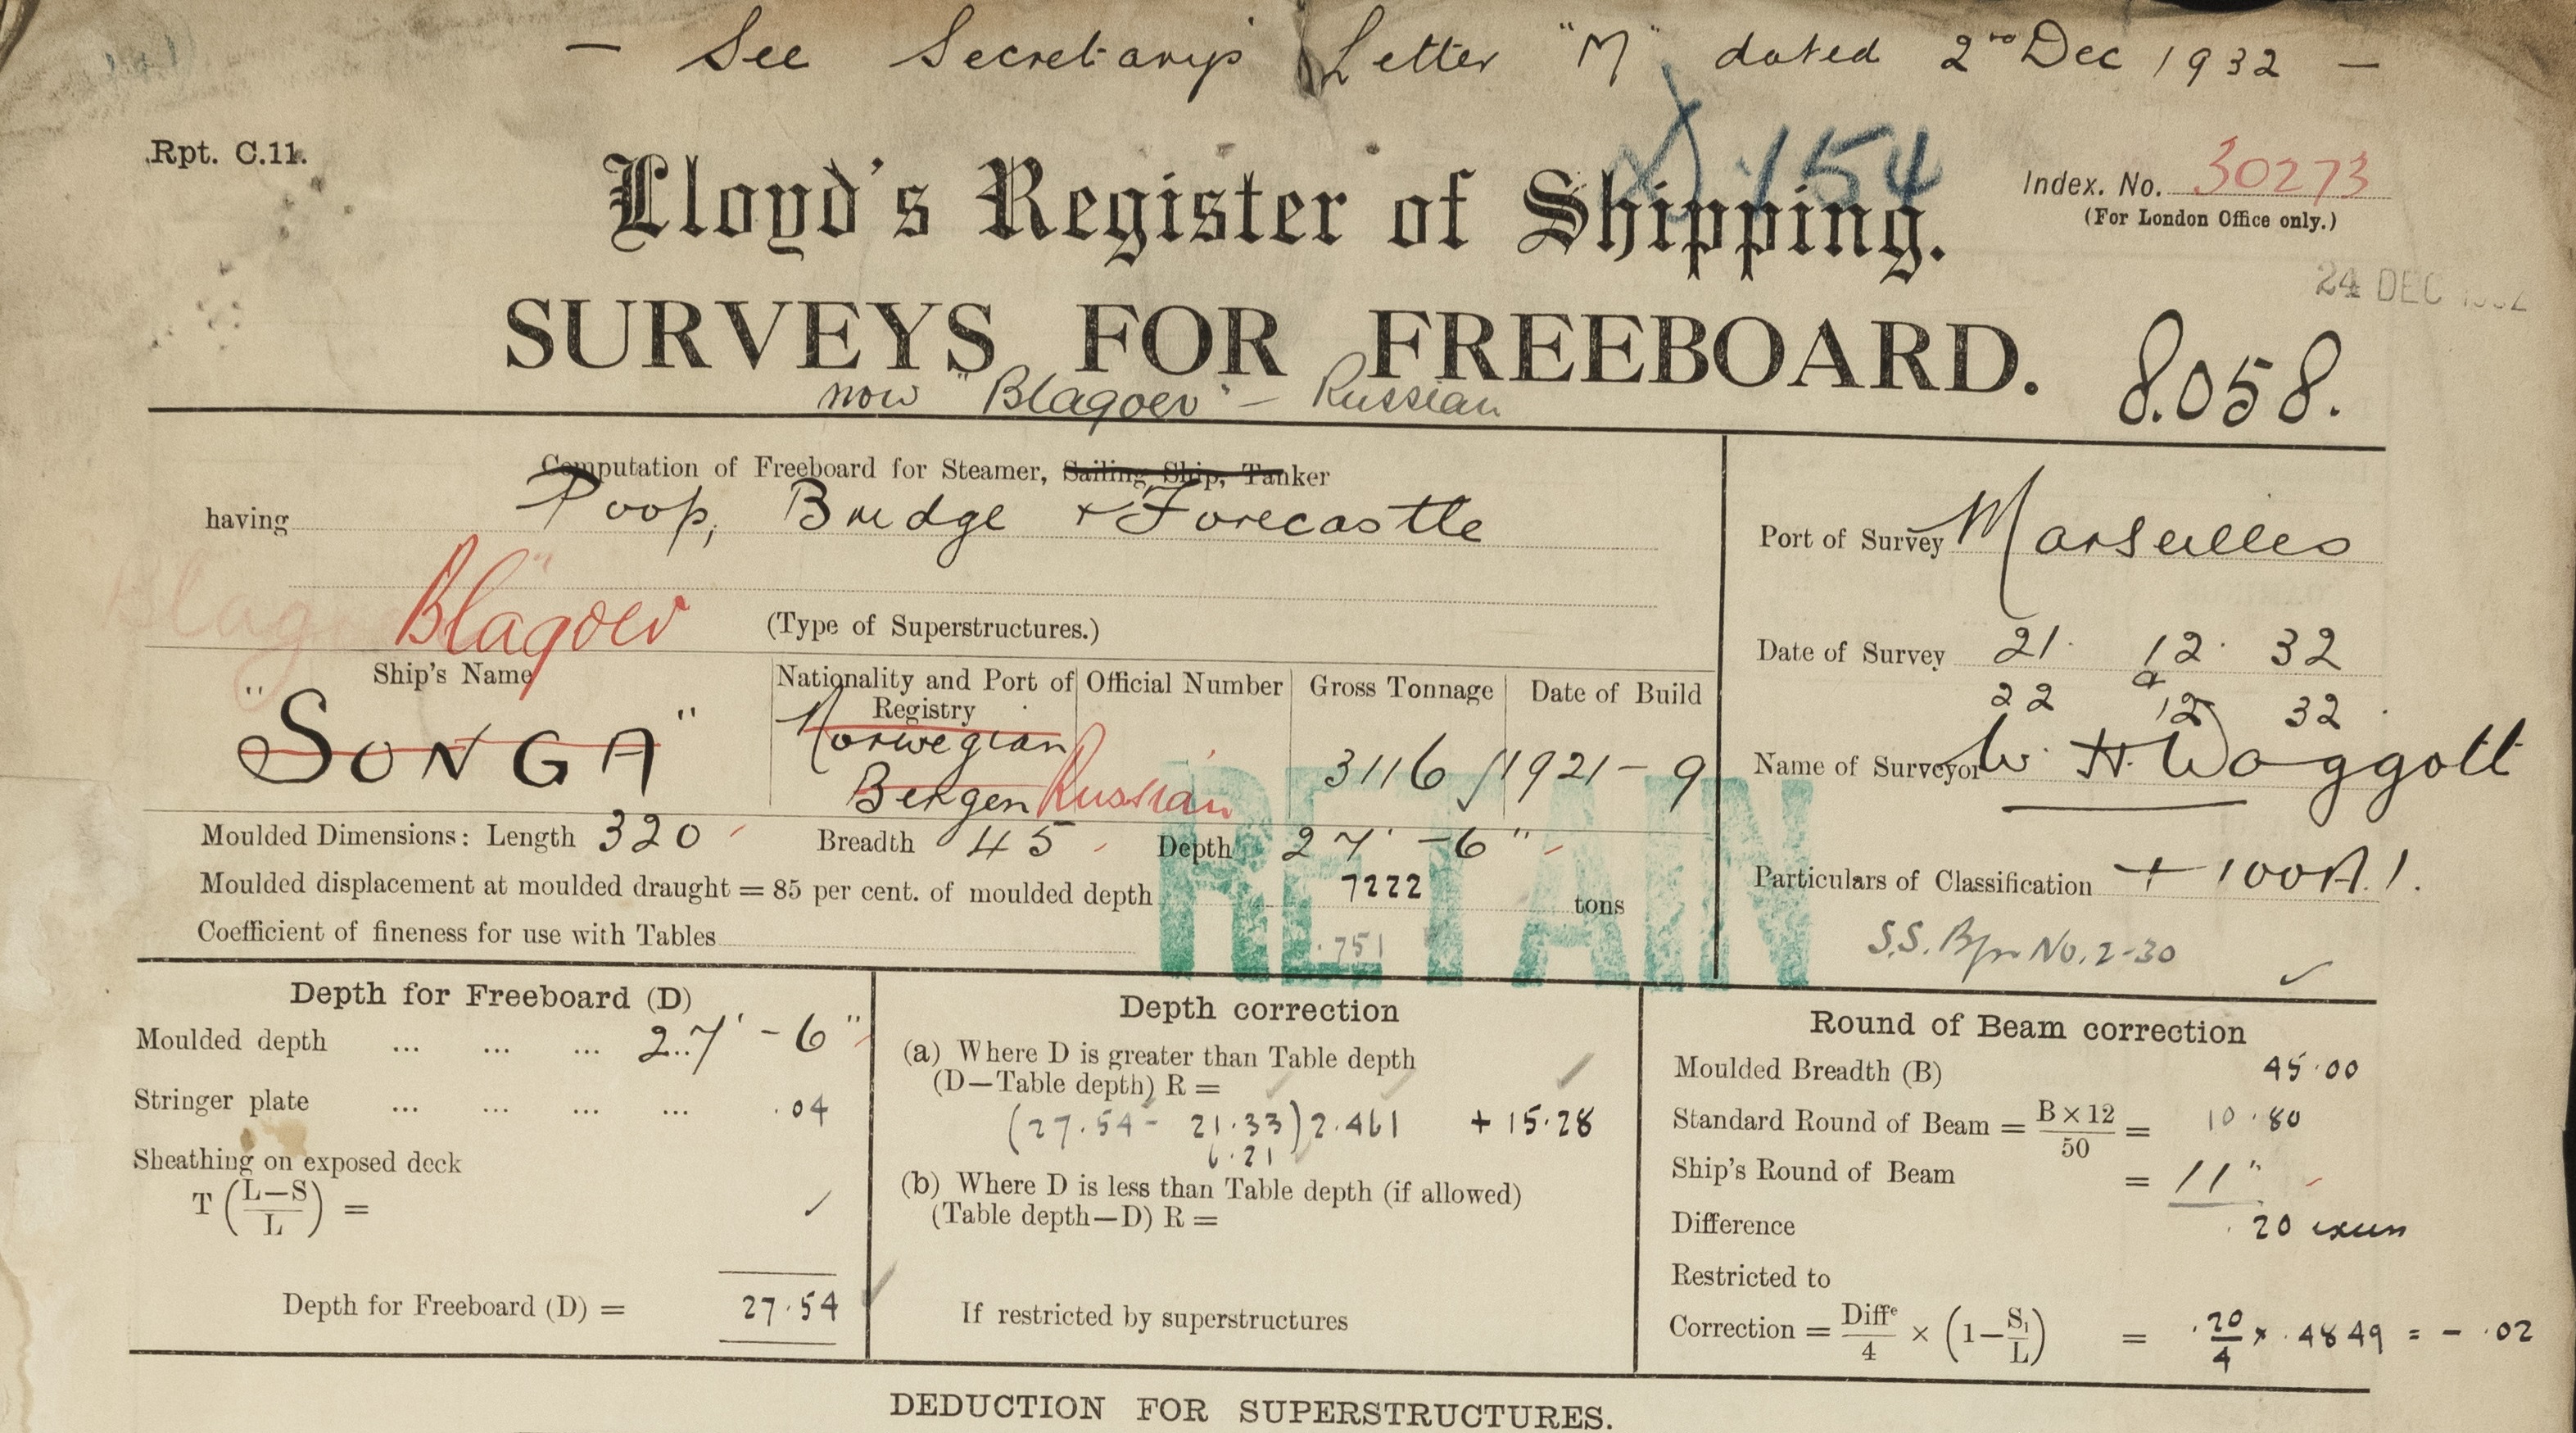 — See Secretary's Letter "M" dated 2nd Dec 1932 —
Rpt. C.11.
154
Lloyd's Register of Shipping.
Index. No. 30273
(For London Office only.)
24 DEC
SURVEYS FOR FREEBOARD.
8058.
now "Blagoev" — Russian
Computation of Freeboard for Steamer, Sailing Ship, Tanker
having Poop, Bridge & Forecastle
Blagoev
(Type of Superstructures.)
Port of Survey Marseilles
Date of Survey 21. 12. 32
& 22 12 32.
Name of Surveyor W. H. Waggott
Particulars of Classification + 100A.1.
S.S. No. 2-30
Ship's Name
"SONGA"
Nationality and Port of Registry
Norwegian
Bergen Russian
Official Number
Gross Tonnage
3116
Date of Build
1921 - 9
Moulded Dimensions: Length 320 Breadth 45 Depth 27' - 6"
Moulded displacement at moulded draught = 85 per cent. of moulded depth 7222 tons
Coefficient of fineness for use with Tables .751
RETAIN
Depth for Freeboard (D)
Moulded depth ... ... ... 27' - 6"
Stringer plate ... ... ... ... .04
Sheathing on exposed deck
T (L—S / L) = ✓
Depth for Freeboard (D) = 27.54
Depth correction
(a) Where D is greater than Table depth
(D—Table depth) R =
(27.54 - 21.33) 2.461 + 15.28
6.21
(b) Where D is less than Table depth (if allowed)
(Table depth—D) R =
If restricted by superstructures
Round of Beam correction
Moulded Breadth (B) 45.00
Standard Round of Beam = B × 12 / 50 = 10.80
Ship's Round of Beam = 11"
Difference .20
Restricted to
Correction = Diffe / 4 × (1— S₁ / L) = .20 / 4 × .4849 = - .02
DEDUCTION FOR SUPERSTRUCTURES.